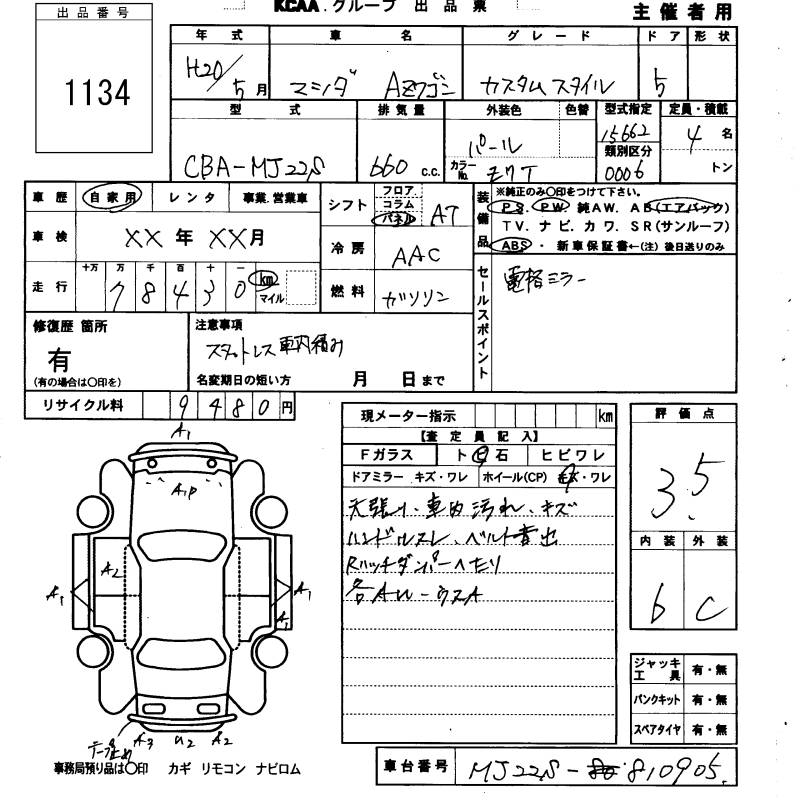 KCAA.グループ 出品票
主催者用
出品番号
1134
年式 車名 グレード ドア 形状
H20/5月 マツダ AZワゴン カスタムスタイル 5
型式 排気量 外装色 色替 型式指定 定員・積載
CBA-MJ22S 660 c.c. パール 15662 4名
カラーNo. 類別区分
0006 トン
車歴 自家用 レンタ 事業.営業車
シフト フロア コラム パネル AT
装備品
※純正のみ○印をつけて下さい。
PS. PW. 純AW. AB(エアバック)
TV. ナビ. カワ. SR(サンルーフ)
ABS・ 新車保証書←(注) 後日送りのみ
車検 XX年 XX月
冷房 AAC
走行 十万 万 千 百 十 一
78430 km マイル
燃料 ガソリン
セールスポイント
電格ミラー
修復歴 箇所
有
(有の場合は○印を)
注意事項
スタットレス車内積み
名変期日の短い方 月 日まで
リサイクル料 9480円
現メーター指示 km
【査定員記入】
Fガラス ト ビ 石 ヒビワレ
ドアミラー キズ・ワレ ホイール(CP) キズ・ワレ
天張り、車内汚れ、キズ
ハンドルスレ、ベルト音出
Rハッチダンパーへたり
各AW-ウスA
評価点
3.5
内装 外装
6 C
ジャッキ工具 有・無
パンクキット 有・無
スペアタイヤ 有・無
A1
A1P
A2
A1
A1
A1
A3 U2 A2
事務局預り品は○印 カギ リモコン ナビロム
車台番号 MJ22S- 810905.